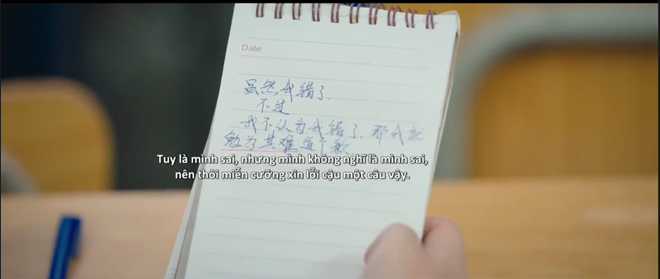 Date
虽然我错了.
不过
我不认为我错了.那我就
勉为其难道个歉
Tuy là mình sai, nhưng mình không nghĩ là mình sai,
nên thôi miễn cưỡng xin lỗi cậu một câu vậy.